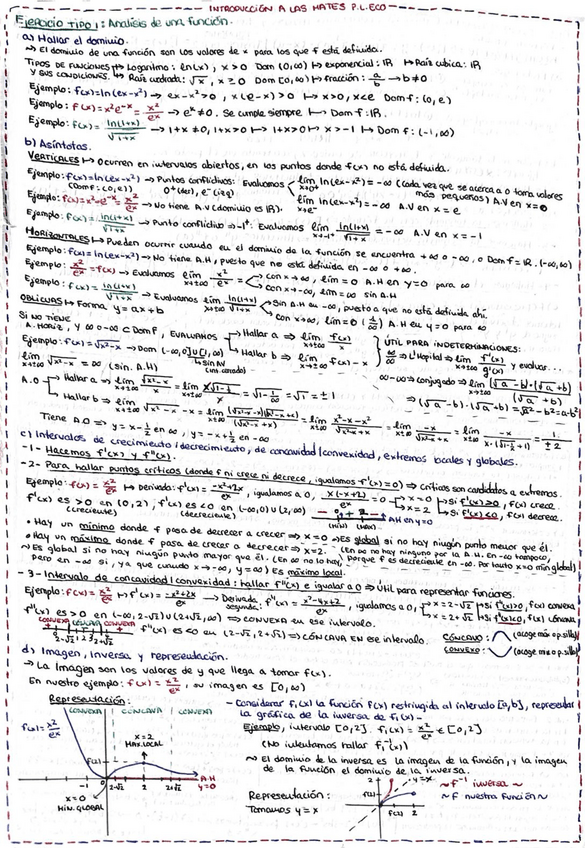 INTRODUCCIÓN A LAS MATES P.L.ECO
Ejercicio tipo 1: Análisis de una función.
a) Hallar el dominio.
→ El dominio de una función son los valores de x para los que f está definida.
Tipos de funciones ↦ Logaritmo: ln(x), x>0 Dom (0,∞) ↦ exponencial: ℝ ↦ Raíz cúbica: ℝ
y sus condiciones. ↦ Raíz cuadrada: √x, x≥0 Dom [0,∞) ↦ fracción: a/b → b≠0
Ejemplo: f(x)=ln(ex-x²) → ex-x²>0, x(e-x)>0 ↦ x>0, x<e Dom f: (0,e)
Ejemplo: f(x)=x²e^-x = x²/e^x → e^x≠0. Se cumple siempre ↦ Dom f: ℝ.
Ejemplo: f(x)= ln(1+x)/√(1+x) → 1+x≠0, 1+x>0 ↦ 1+x>0 ↦ x>-1 ↦ Dom f: (-1,∞)
b) Asíntotas.
VERTICALES ↦ Ocurren en intervalos abiertos, en los puntos donde f(x) no está definida.
Ejemplo: f(x)=ln(ex-x²) → Puntos conflictivos: Evaluamos lim x→0⁺ ln(ex-x²) = -∞ (cada vez que se acerca a 0 toma valores
(Dom f: (0,e)) 0⁺(der), e⁻(izq) más pequeños) A.V en x=0
lim x→e⁻ ln(ex-x²) = -∞ A.V en x=e
Ejemplo: f(x)=x²e^-x = x²/e^x → No tiene A.V (dominio es ℝ).
Ejemplo: f(x)= ln(1+x)/√(1+x) → Punto conflictivo → -1⁺: Evaluamos lim x→-1⁺ ln(1+x)/√(1+x) = -∞ A.V en x=-1
HORIZONTALES ↦ Pueden ocurrir cuando en el dominio de la función se encuentra +∞ o -∞, o Dom f=ℝ. (-∞,∞)
Ejemplo: f(x)=ln(ex-x²) → No tiene A.H, puesto que no está definida en -∞ o +∞.
Ejemplo: x²/e^x = f(x) → Evaluamos lim x→±∞ x²/e^x = Con x→+∞, lim=0 A.H en y=0 para ∞
Con x→-∞, lim=∞ sin A.H
Ejemplo: f(x)= ln(1+x)/√(1+x) → Evaluamos lim x→±∞ ln(1+x)/√(1+x) Sin A.H en -∞, puesto a que no está definida ahí.
Con x→+∞, lim=0 (∞/∞) A.H en y=0 para ∞
OBLICUAS ↦ Forma y=ax+b
Si no tiene
A.Horiz, y ∞ o -∞ ∈ Dom f, EVALUAMOS Hallar a ⇒ lim x→±∞ f(x)/x
Hallar b ⇒ lim x→±∞ f(x)-
ÚTIL PARA INDETERMINACIONES:
∞/∞ ⇒ L'Hopital ⇒ lim x→±∞ f'(x)/g'(x) y evaluar...
Ejemplo: f(x)=√(x²-x) → Dom (-∞,0]∪[1,∞)
lim x→±∞ √(x²-x) = ∞ (sin A.H)
∞-∞ ⇒ conjugado ⇒ lim x→±∞ (√a-b)·(√a+b)/(√a+b)
⇒ (√a-b)·(√a+b)=√a²-b²=a-b²
A.O Hallar a ⇒ lim x→±∞ √(x²-x)/x = lim x→±∞ x√(1-1/x)/x = √(1-1/∞) = √1 = ±1
Hallar b ⇒ lim x→±∞ √(x²-x)-x = lim x→±∞ (√(x²-x)-x)(√(x²-x)+x)/(√(x²-x)+x) = lim x→±∞ x²-x-x²/√(x²-x)+x = lim x→±∞ -x/√(x²-x)+x = lim x→±∞ -x/x·(√(1-1/x)+1) = 1/±2
Tiene A.O ⇒ y=x-½ en ∞, y=-x+½ en -∞
c) Intervalos de crecimiento/decrecimiento, de concavidad/convexidad, extremos locales y globales.
-1- Hacemos f'(x) y f''(x).
-2- Para hallar puntos críticos (donde f ni crece ni decrece, igualamos f'(x)=0) ⇒ Críticos son candidatos a extremos.
Ejemplo: f(x)= x²/e^x ↦ Derivada: f'(x)= -x²+2x/e^x, igualamos a 0, x(-x+2)/e^x = 0 x=0 Si f'(x)>0, f(x) crece.
x=2 Si f'(x)<0, f(x) decrece.
f'(x) es >0 en (0,2), f'(x) es <0 en (-∞,0)∪(2,∞)
(creciente) (decreciente) (mín) (máx) A.H en y=0
• Hay un mínimo donde f pasa de decrecer a crecer ⇒ x=0 → Es global si no hay ningún punto menor que él.
• Hay un máximo donde f pasa de crecer a decrecer ⇒ x=2. (En ∞ no hay ninguno por la A.H. en -∞ tampoco,
→ Es global si no hay ningún punto mayor que él. (En ∞ no lo hay, porque f es decreciente en -∞. Por tanto x=0 mín global)
pero en -∞ sí, ya que cuando x→-∞, y=∞) Es máximo local.
-3- Intervalo de concavidad/convexidad: hallar f''(x) e igualar a 0 ⇒ Útil para representar funciones.
Ejemplo: f(x)= x²/e^x ↦ f'(x)= -x²+2x/e^x → Derivada segunda: f''(x)= x²-4x+2/e^x, igualamos a 0, x=2-√2 Si f''(x)>0, f(x) convexa
x=2+√2 Si f''(x)<0, f(x) cóncava.
f''(x) es >0 en (-∞,2-√2)∪(2+√2,∞) ⇒ CONVEXA en ese intervalo.
CONVEXA CÓNCAVA CONVEXA
2-√2 2+√2 f''(x) es <0 en (2-√2,2+√2) ⇒ CÓNCAVA EN ESE INTERVALO.
CÓNCAVO:
CONVEXO:
d) Imagen, inversa y representación.
→ La Imagen son los valores de y que llega a tomar f(x).
En nuestro ejemplo: f(x)= x²/e^x, su imagen es [0,∞)
Representación:
CONVEXA CÓNCAVA CONVEXA
f(x)= x²/e^x
x=2
MÁX.LOCAL
f(2)
-1 0 2-√2 2 2+√2 A.H y=0
x=0
MÍN.GLOBAL
- Considerar f₁(x) la función f(x) restringida al intervalo [a,b], representar
la gráfica de la inversa de f₁(x) -
Ejemplo, intervalo [0,2]. f₁(x)= x²/e^x ∈ [0,2]
(No intentamos hallar f₁⁻¹(x))
~ El dominio de la inversa es la imagen de la función, y la imagen
de la función el dominio de la inversa.
Representación:
Tomamos y=x
2 y=x
f(2)
f(2) 2
~ f⁻¹ inversa ~
~ f nuestra función ~